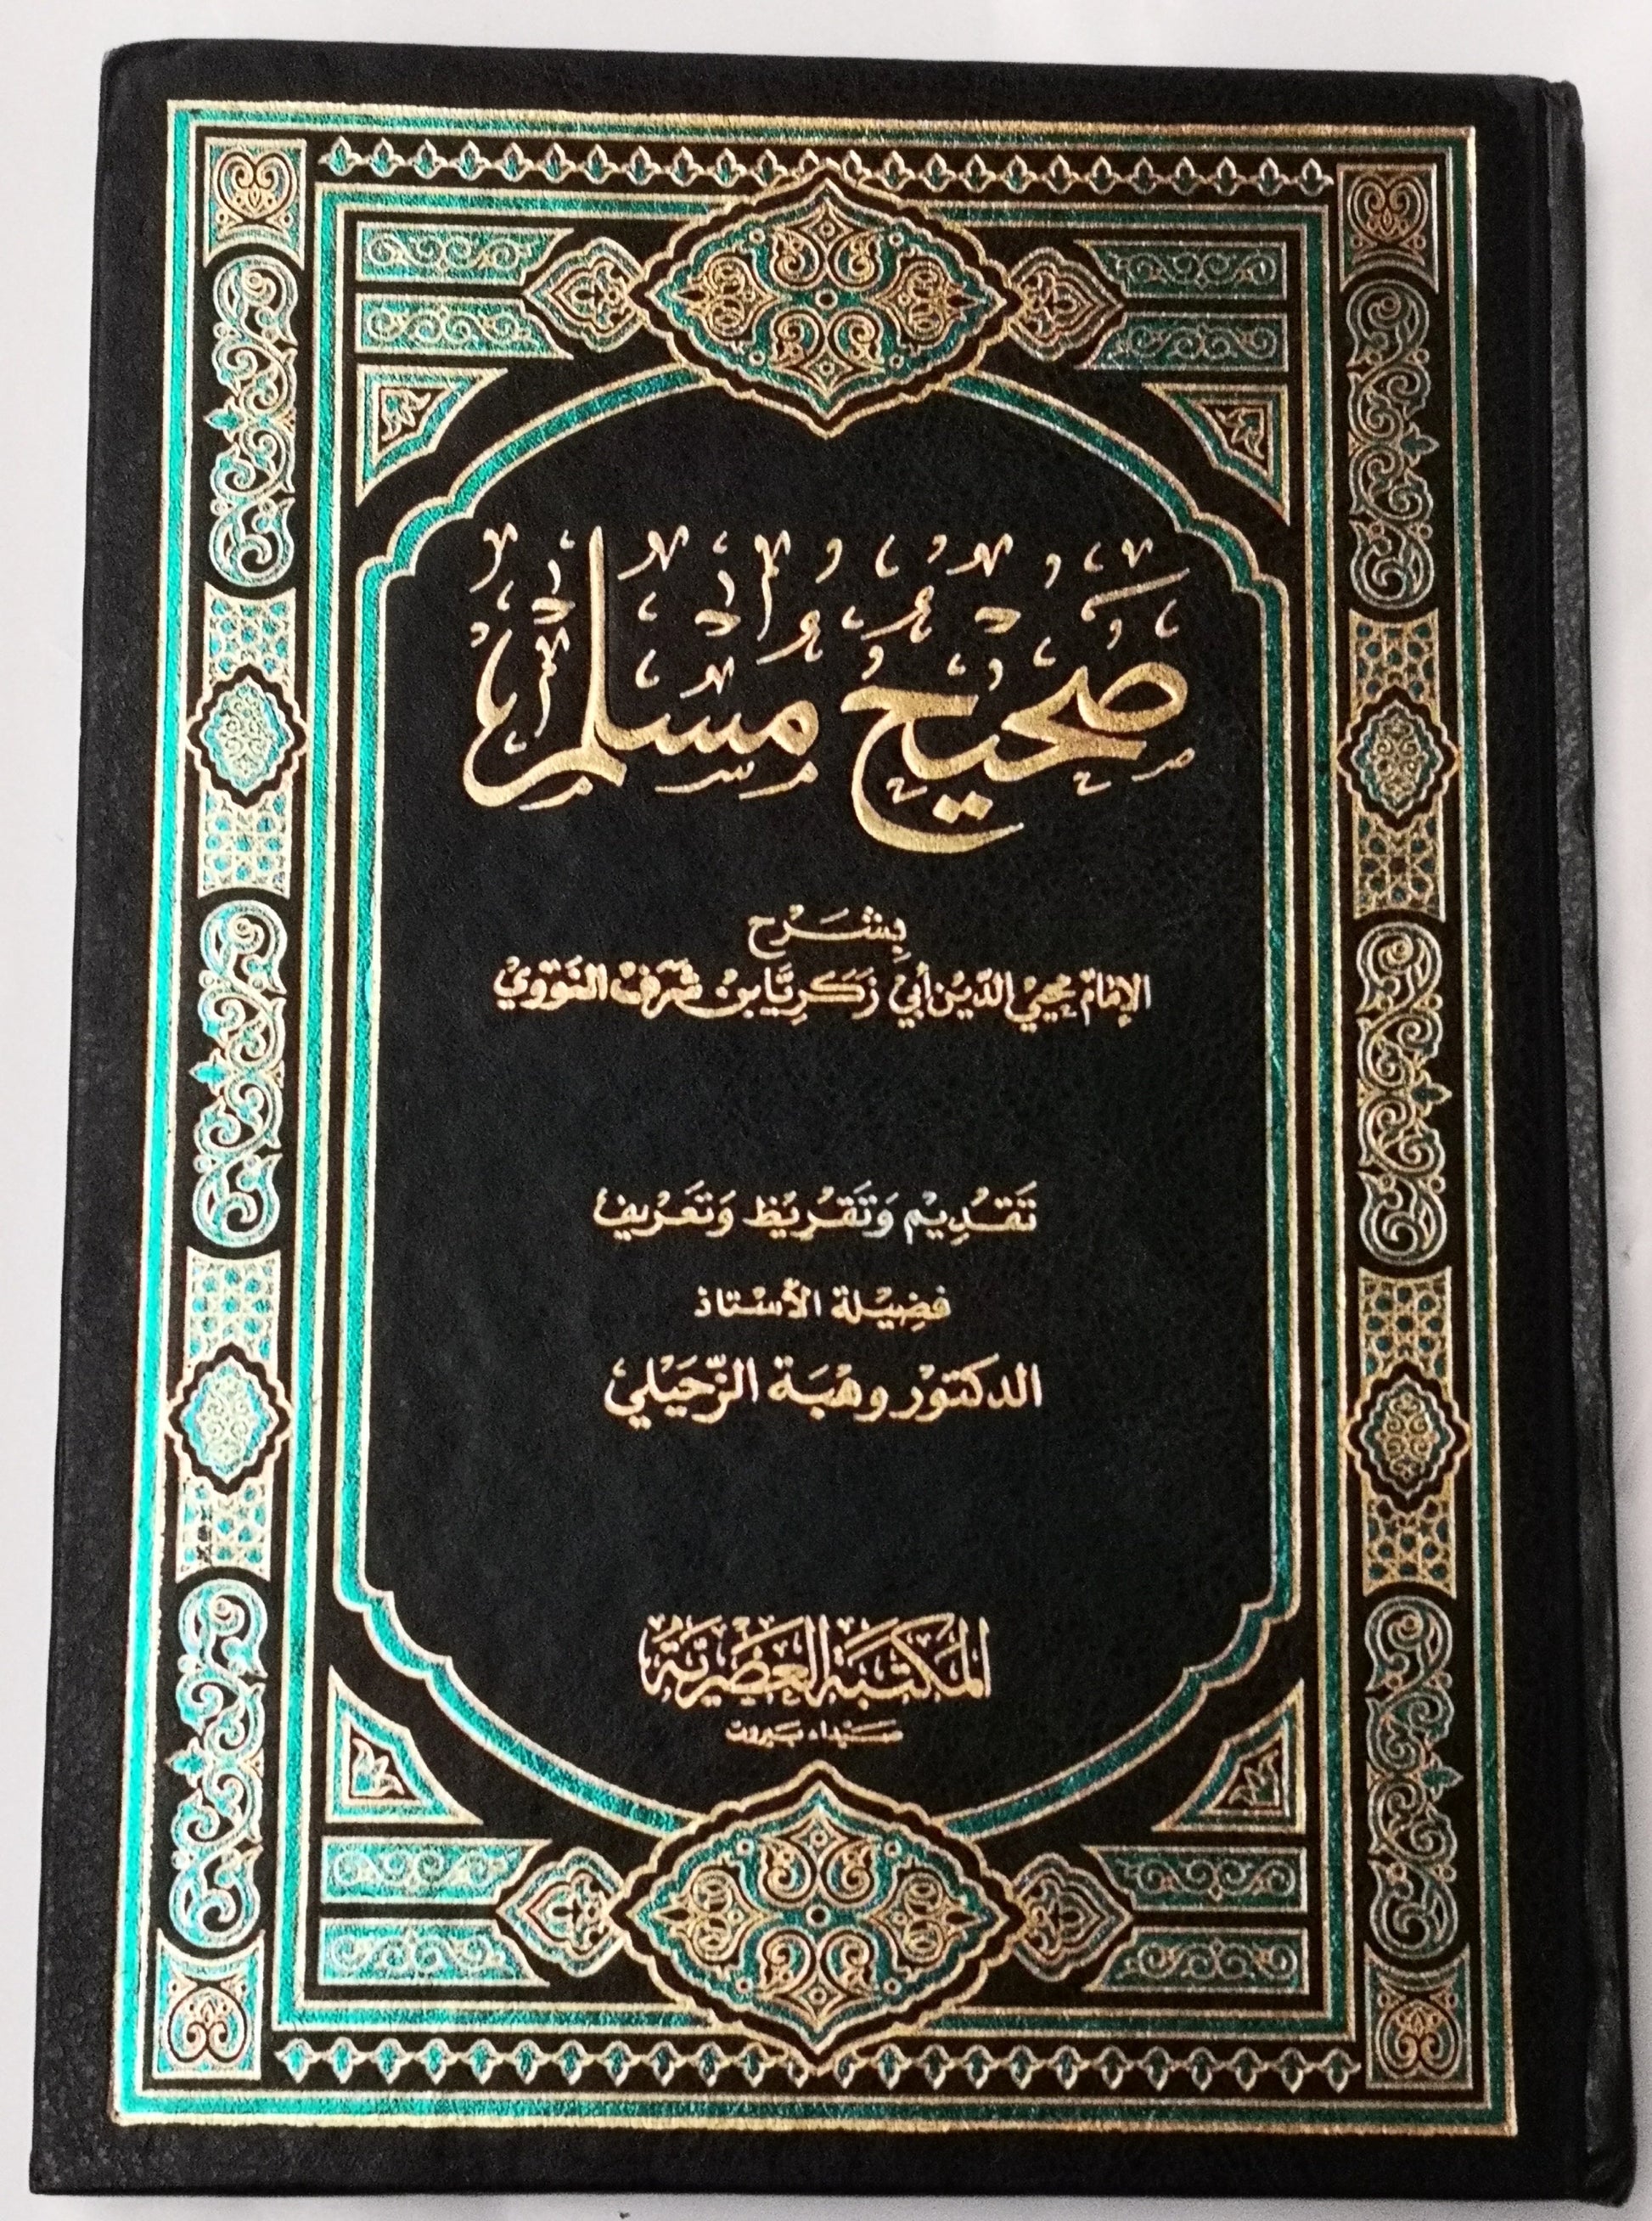 صَحِيْح مُسْلِم
بِشَرْح
الإِمَامْ مُحْيِي الدِّين أَبِي زَكَرِيَّا بن شَرَفْ النَّوَوِيْ
تَقْدِيْم وَتَقْرِيْظ وَتَعْرِيف
فَضِيْلة الأسْتاذ
الدكتوْر وهْبَة الزّحَيْلي
المكتبَة العَصْريَّة
صَيْدا، بَيروت